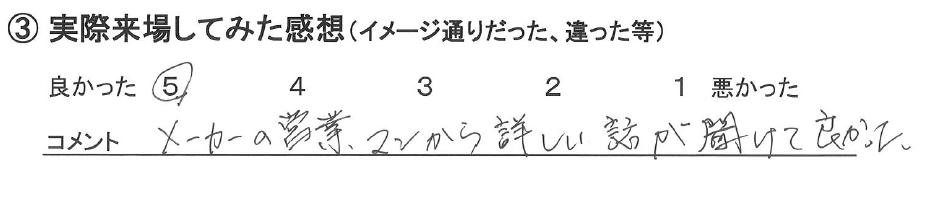 ③ 実際来場してみた感想（イメージ通りだった、違った等）
良かった 5 4 3 2 1 悪かった
コメント メーカーの営業マンから詳しい話が聞けて良かった。